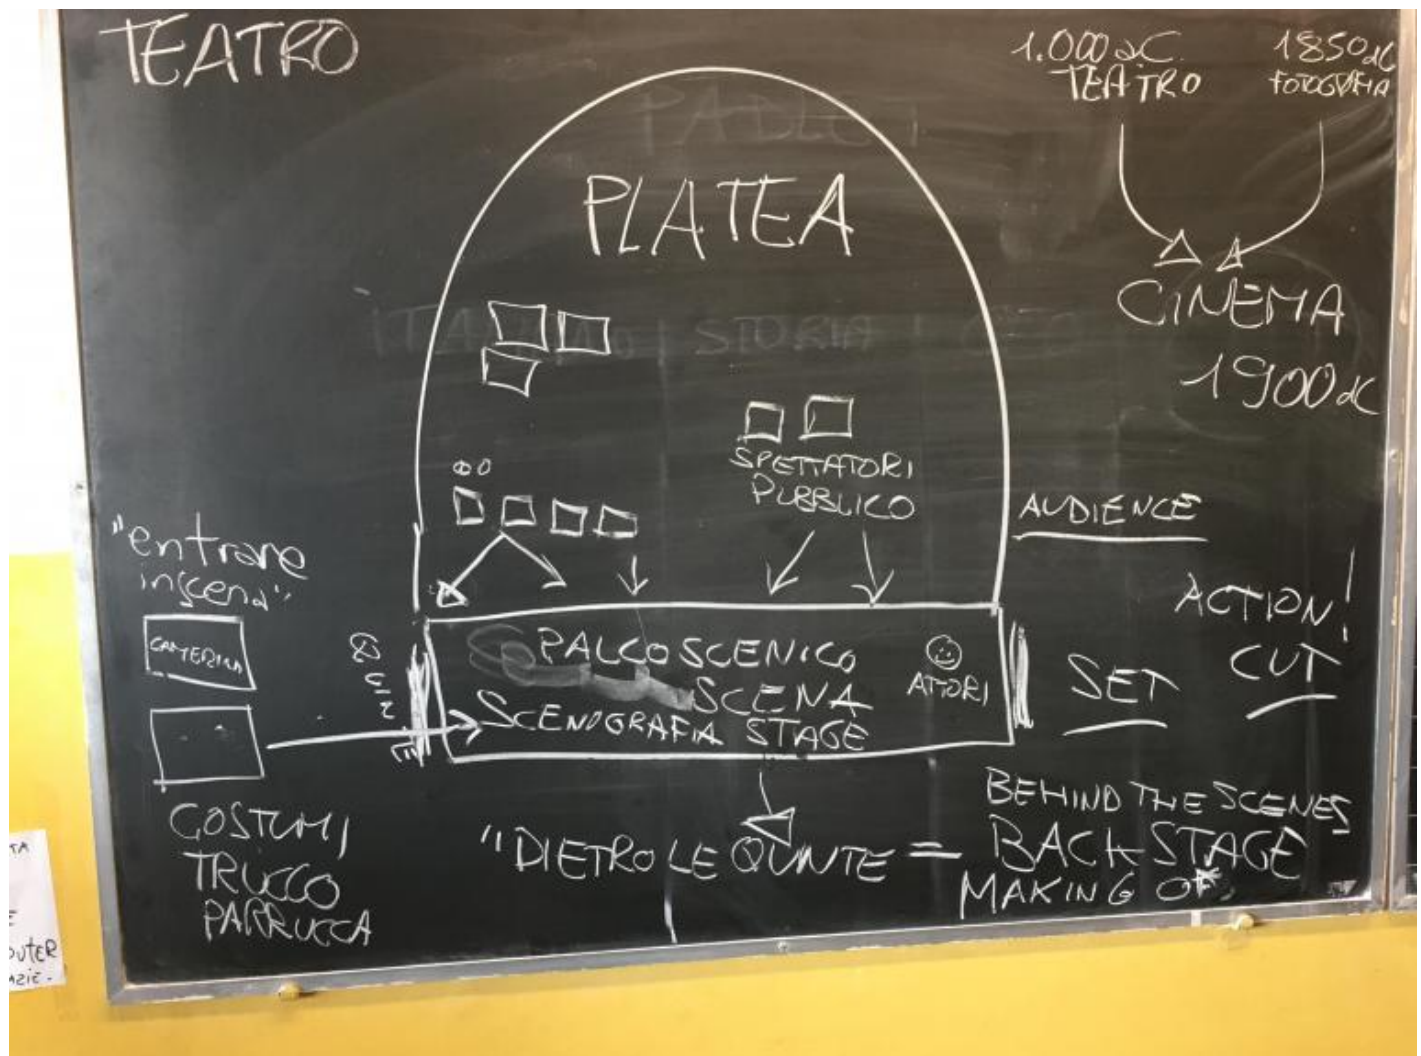 TEATRO
1.000 a.C.
TEATRO
1850 dC
FOTOGRAFIA
PLATEA
CINEMA
1900 dC
ITALIANO | STORIA |
SPETTATORI
PUBBLICO
AUDIENCE
"entrare
in scena"
CAMERINI
PALCOSCENICO
SCENA
SCENOGRAFIA STAGE
ATTORI
SET
ACTION!
CUT
COSTUMI
TRUCCO
PARRUCCA
"DIETRO LE QUINTE =
BEHIND THE SCENES
BACKSTAGE
MAKING OF
TA
E
OUTER
AZIE.